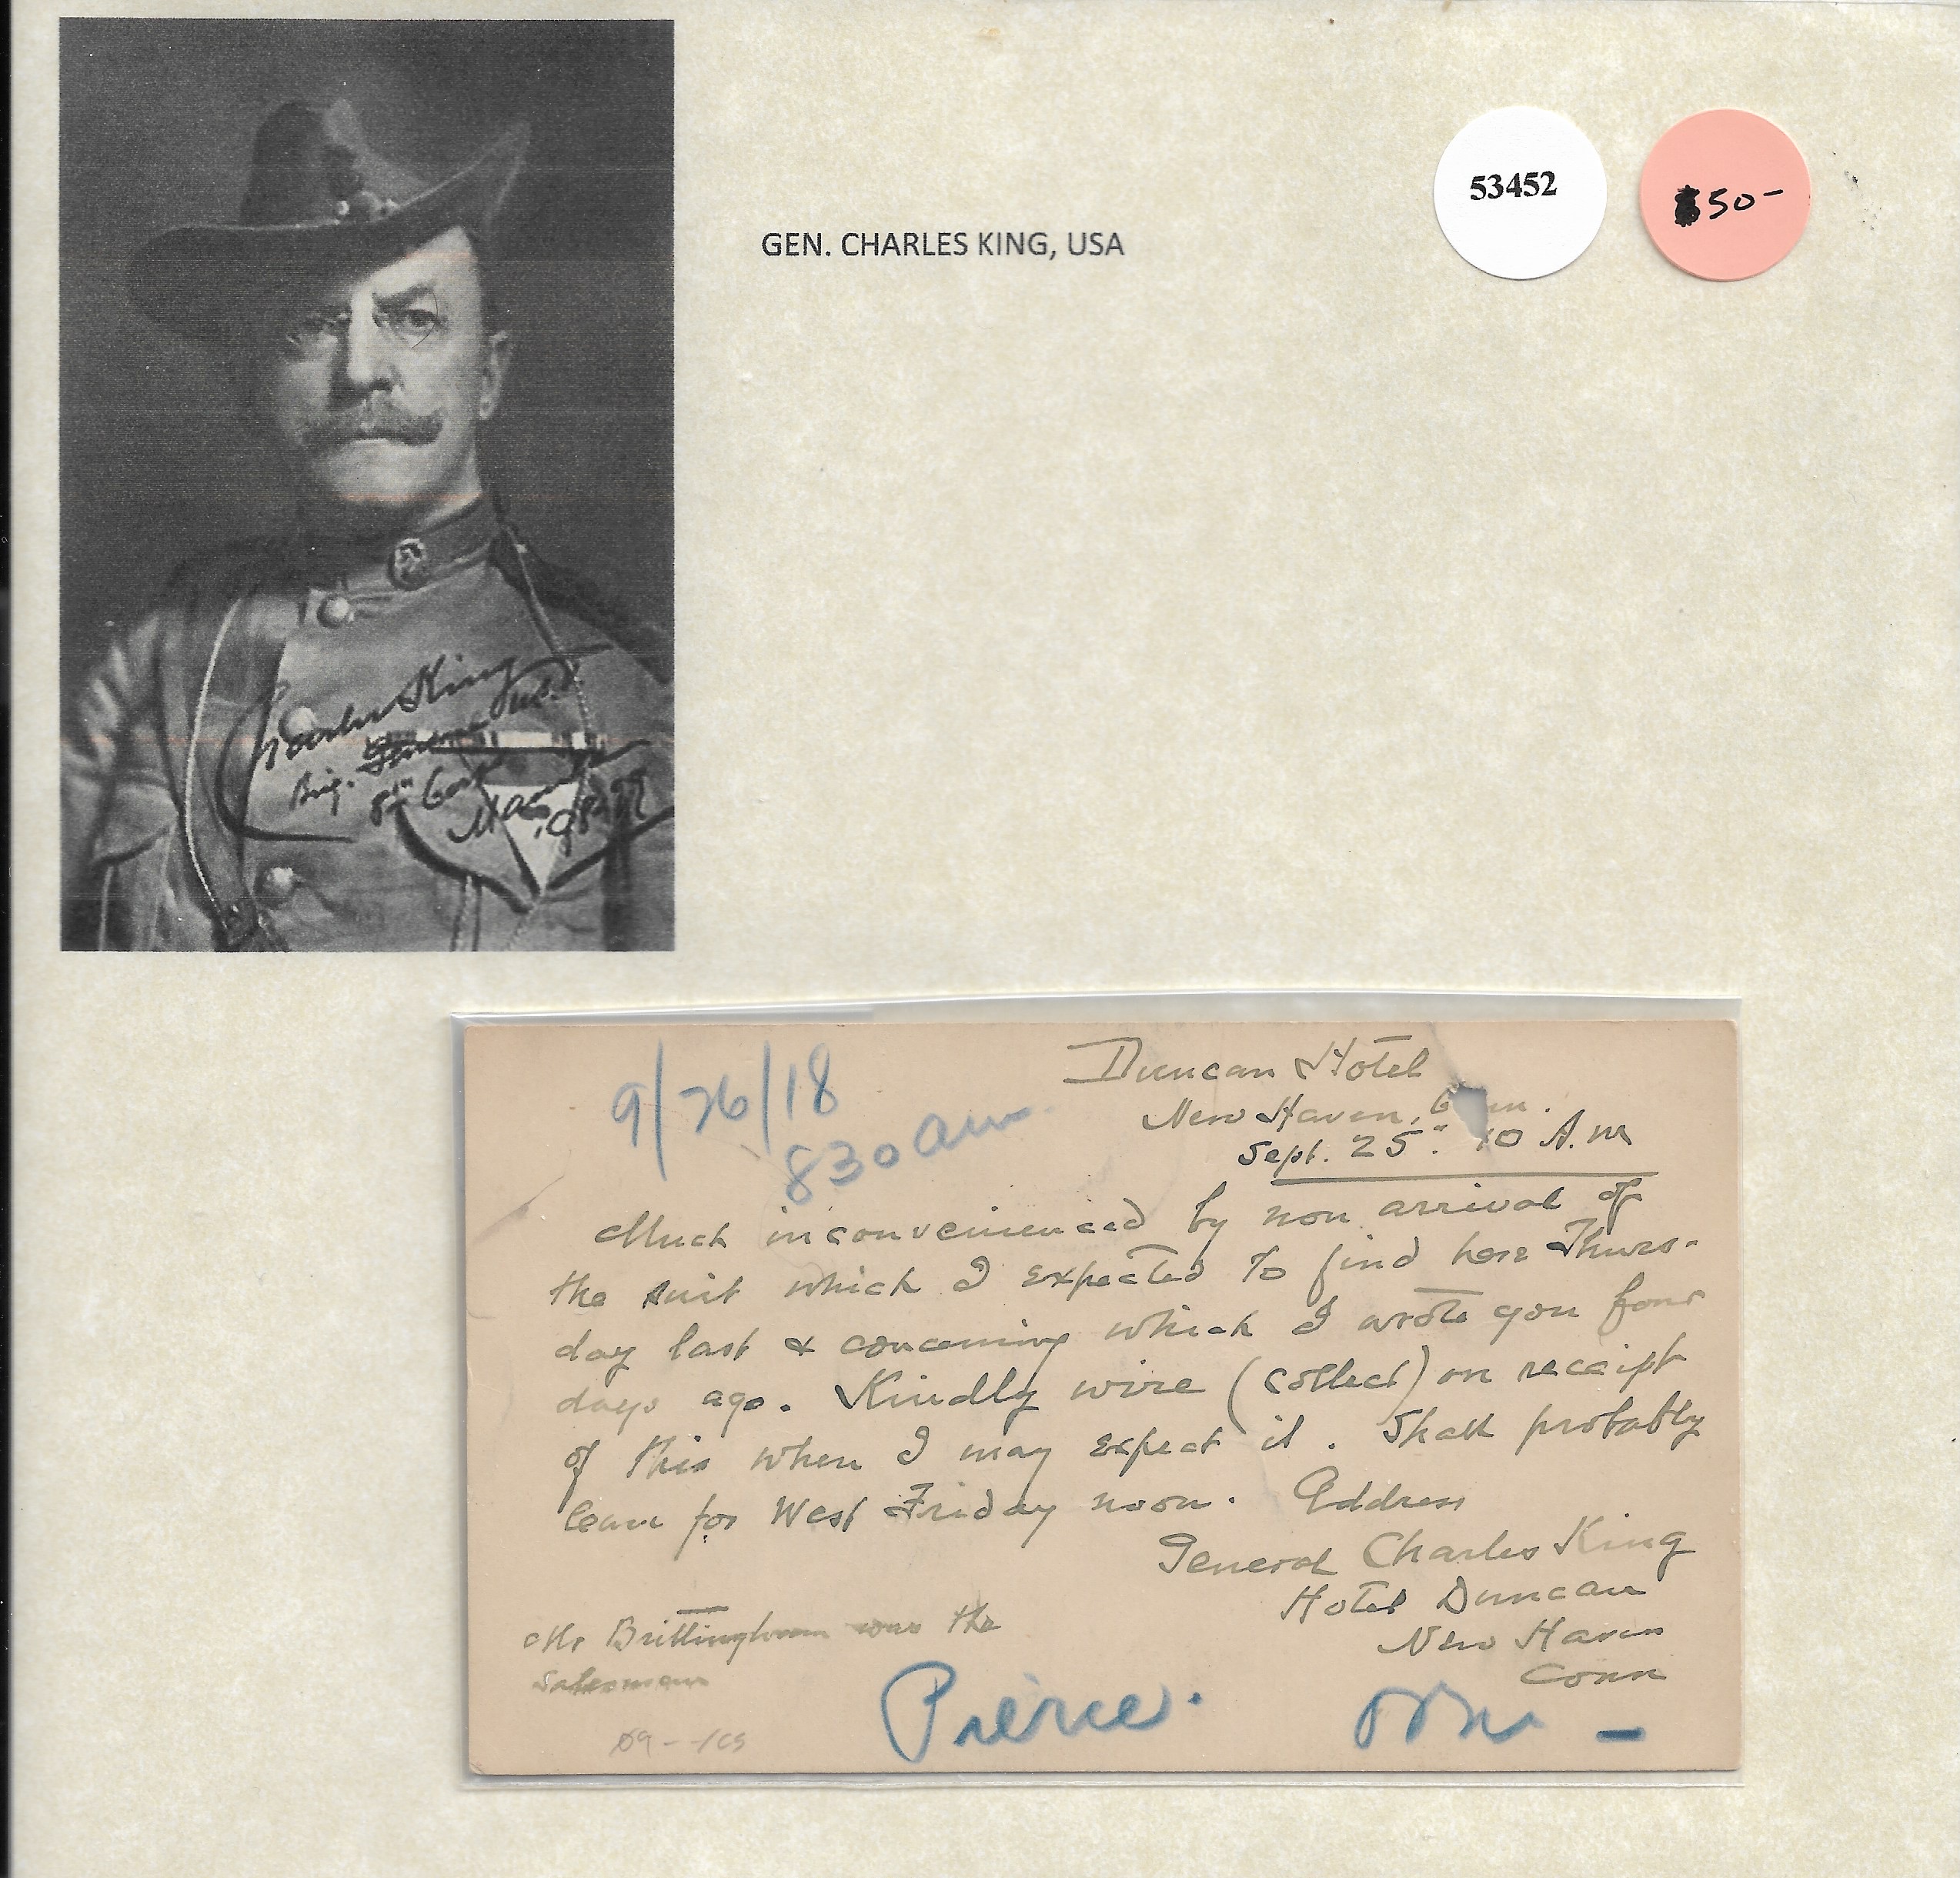 GEN. CHARLES KING, USA
53452
$50-
Charles King
Brig. General U.S.V.
8th Corps
Manila
9/26/18
830 am.
Duncan Hotel
New Haven, Conn.
Sept. 25". 10 A.M
Much inconvenienced by non arrival of
the suit which I expected to find here Thurs-
day last & concerning which I wrote you four
days ago. Kindly wire (collect) on receipt
of this when I may expect it. Shall probably
leave for West Friday noon. Address
General Charles King
Hotel Duncan
New Haven
Conn
Mr Brittingham was the
Salesman
Pierce.